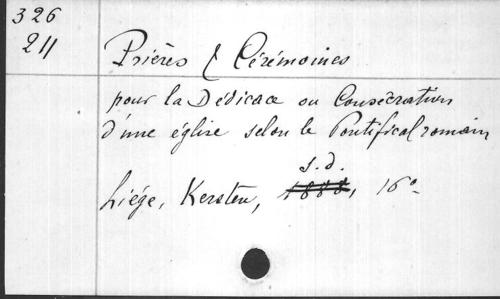 326
211
Prières & Cérémoines
pour la Dédicace ou Consécration
d'une église selon le Pontifical romain
s.d.
Liége, Kersten, 1888, 16°